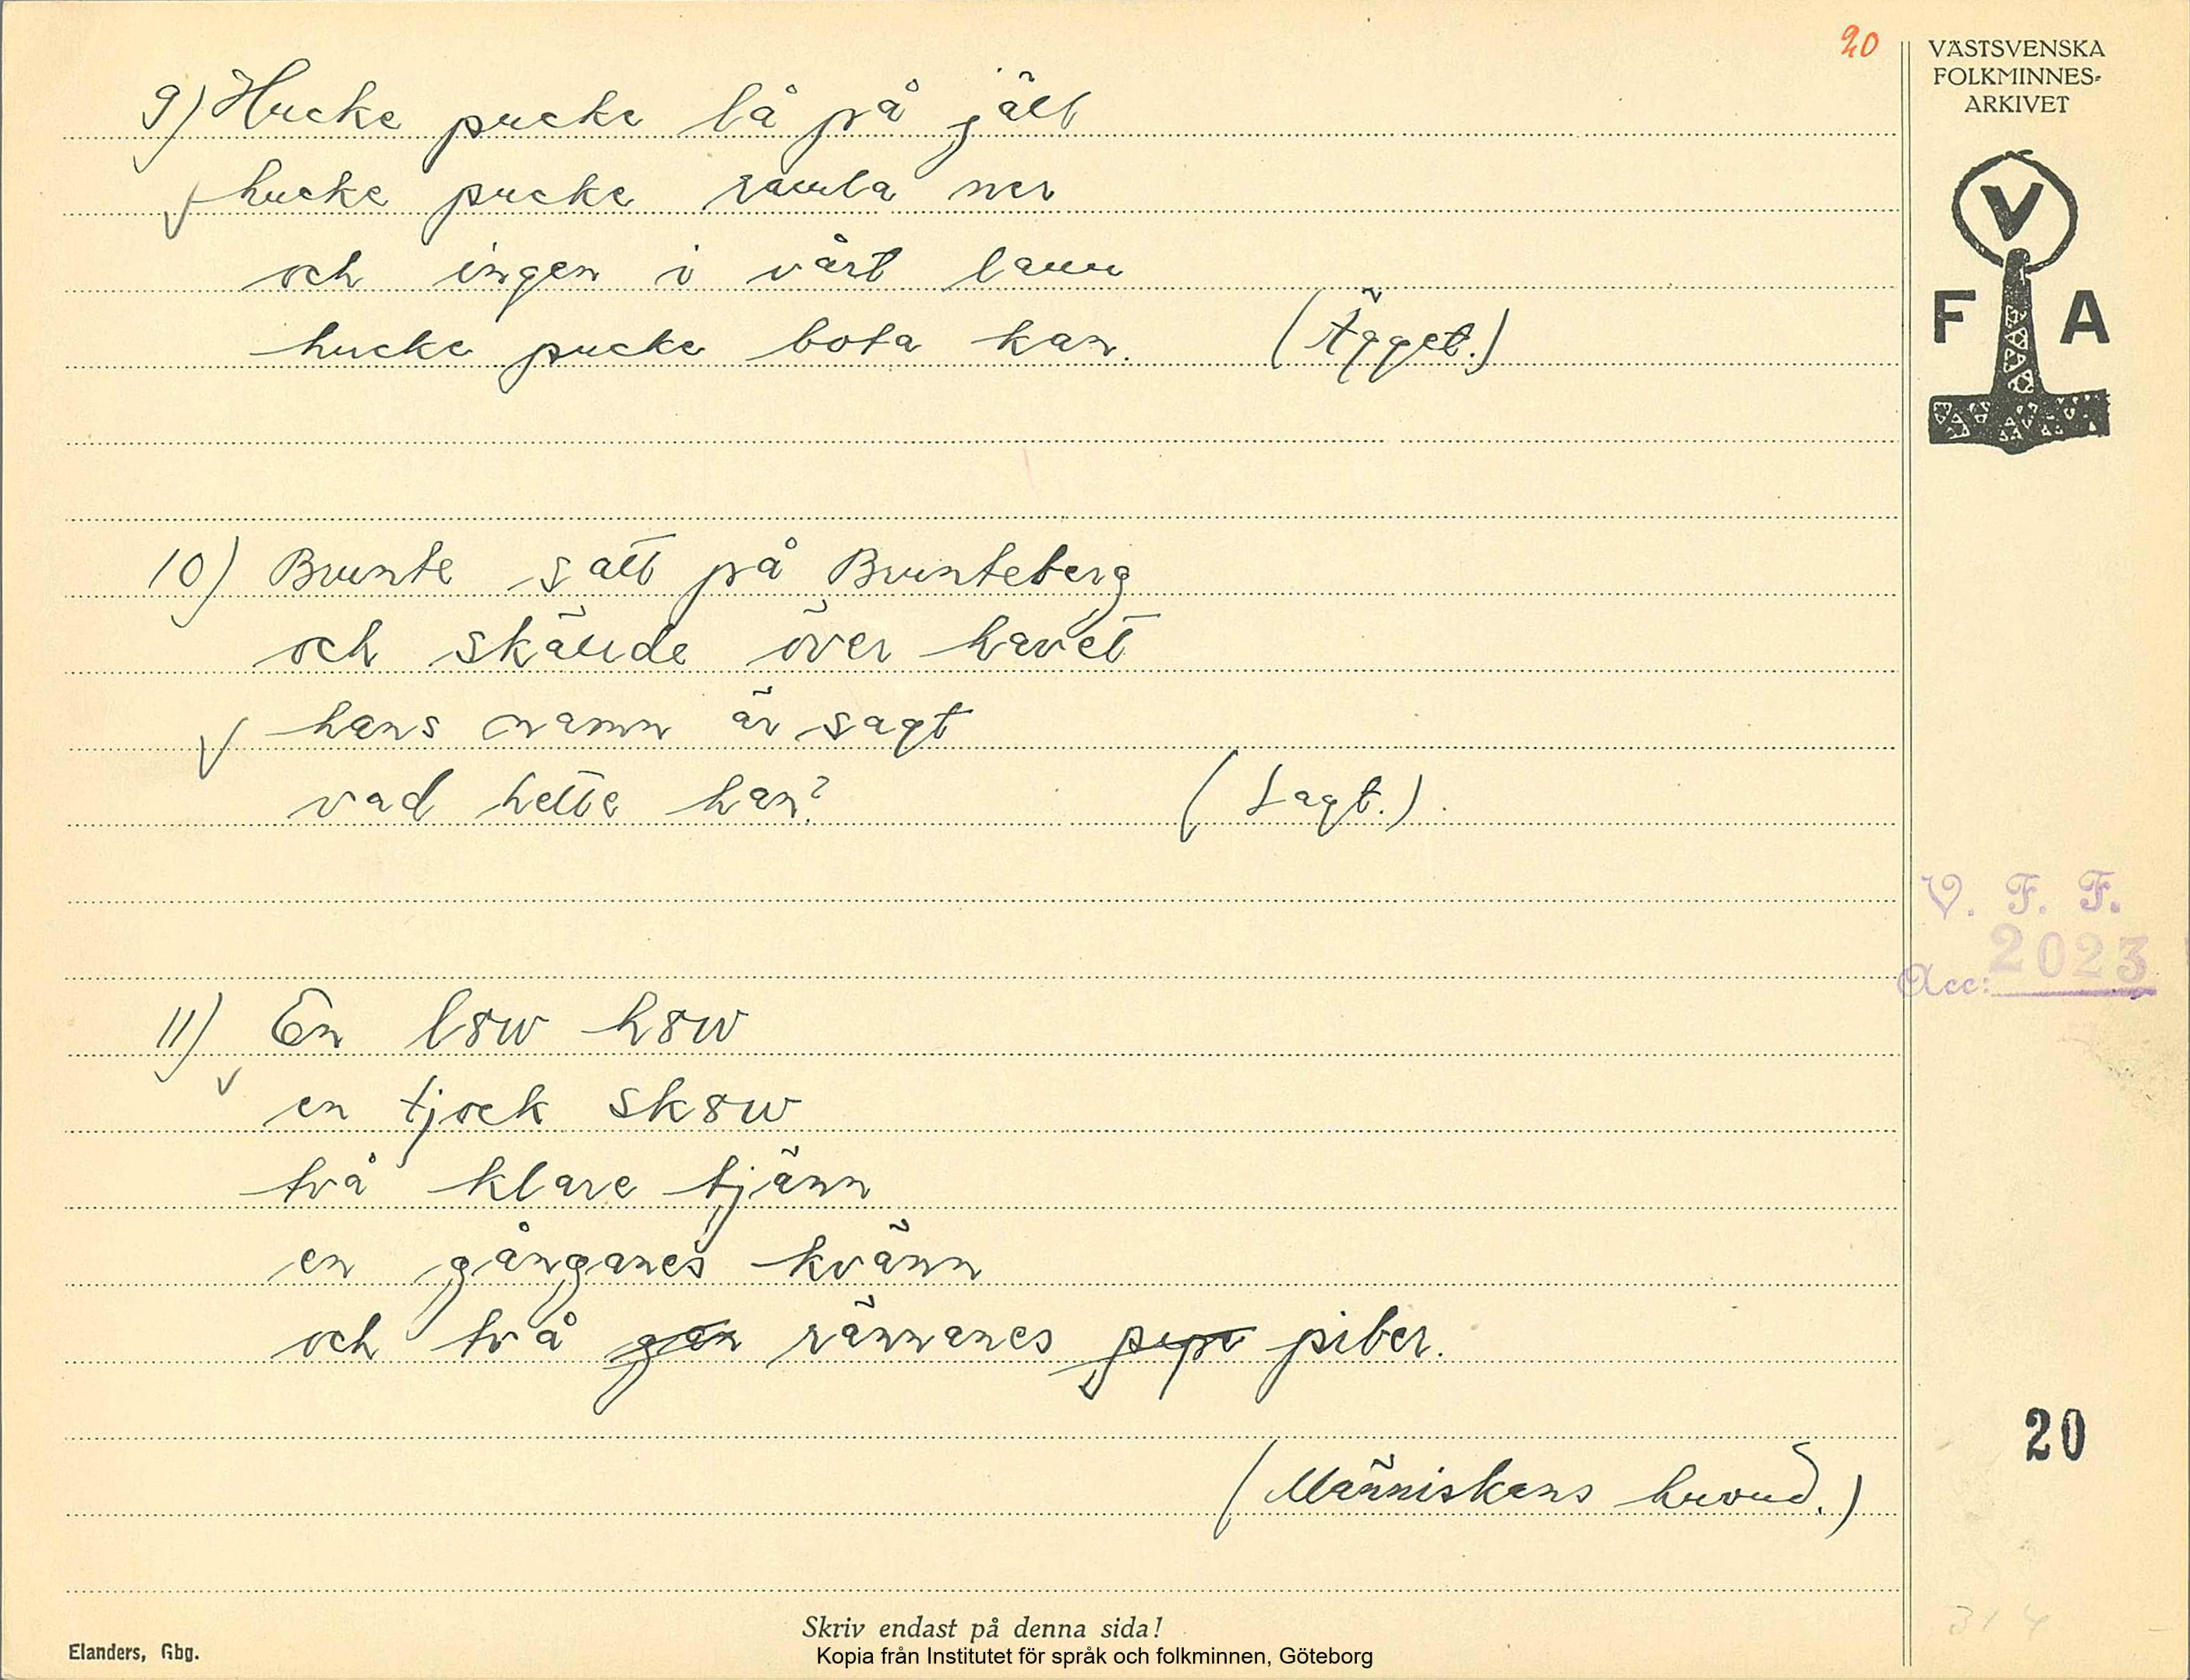 20
VÄSTSVENSKA
FOLKMINNES-
ARKIVET
V
F A
9) Hucke pucke lå på jält
hucke pucke ramla ner
och ingen i vårt lann
hucke pucke bota kan. (Ägget.)
10) Brunte satt på Brunteberg
och skäude över havet
hans namn är sagt
vad hette han? (Sagt.)
V. F. F.
Acc: 2023
11) En l8w h8w
en tjock sk8w
två klare tjänn
en gånganes kvänn
och två gån rännanes pipe piber.
20
(Människans huvud.)
314
Skriv endast på denna sida!
Elanders, Gbg.
Kopia från Institutet för språk och folkminnen, Göteborg